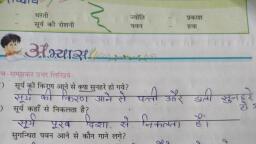 धरती ज्योति प्रकाश
सूर्य की रोशनी पवन हवा
अभ्यास
उत्तर लिखिए-
सूर्य की किरण आने से क्या सुनहरे हो गये?
सूर्य की किरण आने से पत्ती और डाली सुनहरे हो
सूर्य कहाँ से निकलता है?
सूर्य पूरब दिशा से निकलता है।
सुगन्धित पवन आने से कौन गाने लगे?